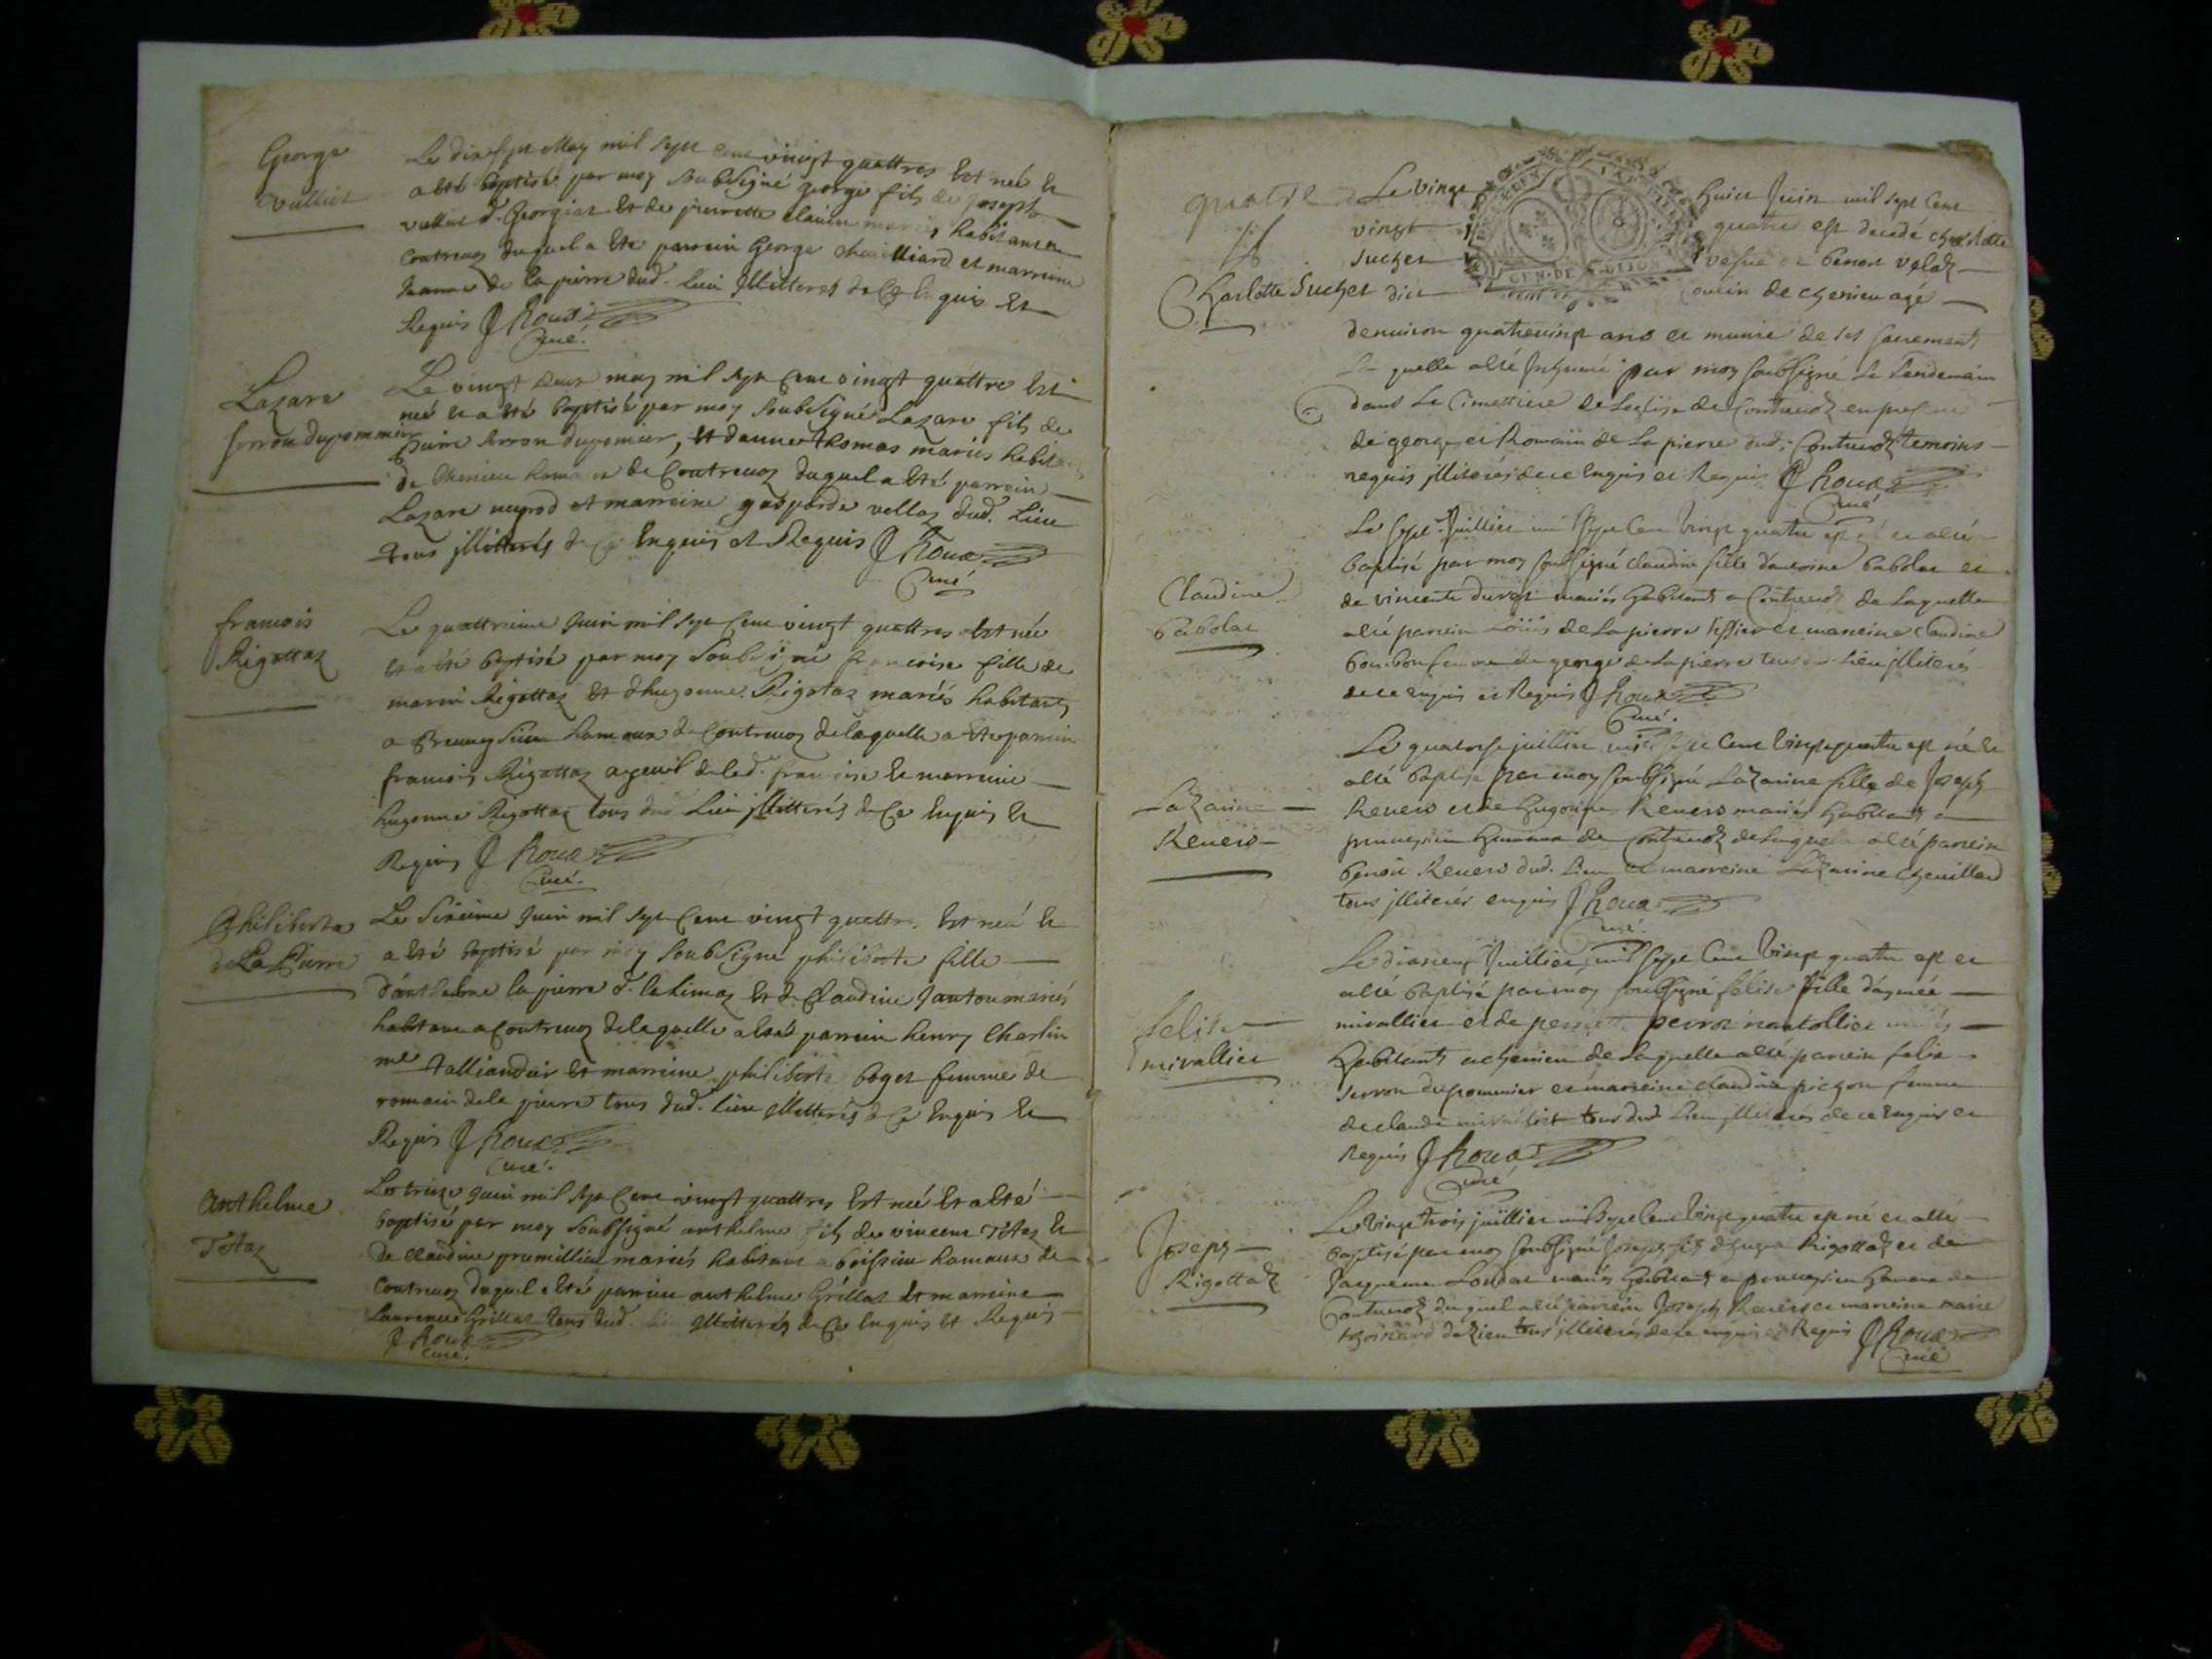 George
vulliet
Le dixsept May mil sept cent vingt quattres Est neé Et
a Eté baptisé par moy soubsigné george fils de joseph
vulliet d. Georgiat Et de pierrette claim mariés habitans a
Contrevoz duquel a Ete parrein George chevilliard et marreine
de la pierre dud. Lieu illitterés de Ce Enquis Et
Requis J Roux
Curé.
Lazare
serron dupommier
Le vingt deux may mil sept Cent vingt quattre Est
neé et a Eté baptisé par moy soubsigné Lazare fils de
serron dupomier, Et thomas mariés habitans
de Chenieu de Contrevoz duquel a Eté parrein
Lazare et marreine gasparde vellaz dud. Lieu
tous jllitterés de Ce Enquis et Requis J Roux
Curé
francois
Rigottaz
Le quattrieme Juin mil sept Cent vingt quattres Est née
Et a été baptisé par moy soubsigné francoise fille de
marin Rigottaz Et d'hugonne Rigotaz mariés habitants
a hameau de Contrevoz de laquelle a Ete parrein
francois Rigottaz ayeuil de lad. francoise Et marreine
hugonne Rigottaz tous dud Lieu jllitterés de Ce Enquis Et
Requis J Roux
Curé.
Philiberte
de La Pierre
Le Sixieme Juin mil sept Cent vingt quattre Est neé Et
a Eté baptisé par moy soubsigné philiberte fille
d'anthelme la pierre d. Et de Claudine Janton mariés
habitans a Contrevoz de laquelle a Eté parrein henry Charlin
me talliandier Et marreine philiberte boget femme de
romain de la pierre tous dud. Lieu jllitterés de Ce Enquis Et
Requis J Roux
Curé.
Anthelme
Tétaz
Le treize Juin mil sept Cent vingt quattres Est neé Et a Eté
baptisé par moy soubsigné anthelme fils de vincent Tétaz Et
de Claudine premillieu mariés habitans a boissieu hameau de
Contrevoz duquel a Eté parrein anthelme Grillat Et marreine
Laurence Grillat tous dud. Lieu jllitterés de Ce Enquis Et Requis
J Roux
Curé.
quatre
Charlotte Suchet
Le vingt huict Juin mil sept Cent
vingt quatre est decedé charlotte
suchet vefve de benoit velaz
dict de chenieu agé
denviron quatrevingt ans et munie de ses sacrements
La quelle a été Inhumé par moy soubsigné Le Lendemain
dans Le Cimettiere de Leglise de Contrevoz en presence
de george et Romain de La pierre dud. Contrevoz temoins
requis jlliterés de ce Enquis et Requis J Roux
Curé
Claudine
babolat
Le sept Juillier mil sept Cent vingt quatre est né et a eté
baptisé par moy soubsigné claudine fille d'antoine babolat et
de vincente duret mariés habitants a Contrevoz de Laquelle
a eté parrein Loüis de Lapierre tissier et marreine claudine
bonbon femme de george de Lapierre tous du Lieu jlliterés
de ce enquis et Requis J Roux
Curé.
Lazarine
Revero
Le quatorse juillier mil sept Cent vingt quatre est né et
a eté baptisé par moy soubsigné Lazarine fille de Joseph
Revero et de hugonine Revero mariés habitants a
hameau de Contrevoz de Laquelle a eté parrein
benoit Revero dud. Lieu et marreine Lazarine chevillard
tous jlliterés enquis J Roux
Curé.
felise
mivallier
Le dixneuf Juillier mil sept Cent vingt quatre est et
a eté baptisé par moy soubsigné felise fille d'aymée
mivallier et de pernette perron nantollier mariés
habitants a chenieu de Laquelle a eté parrein felix
serron dupommier et marreine claudine pichon femme
de claude mivallier tous dud Lieu jlliterés de ce enquis et
Requis J Roux
Curé
Joseph
Rigottaz
Le vingt trois juillier mil sept Cent vingt quatre est né et a eté
baptisé par moy soubsigné joseph fils d'hugue Rigottaz et de
Jacqueme mariés habitants a hameau de
Contrevoz du quel a eté parrein Joseph Revers et marreine marie
thoinard dazieu tous jlliterés de ce enquis et Requis J Roux
Curé